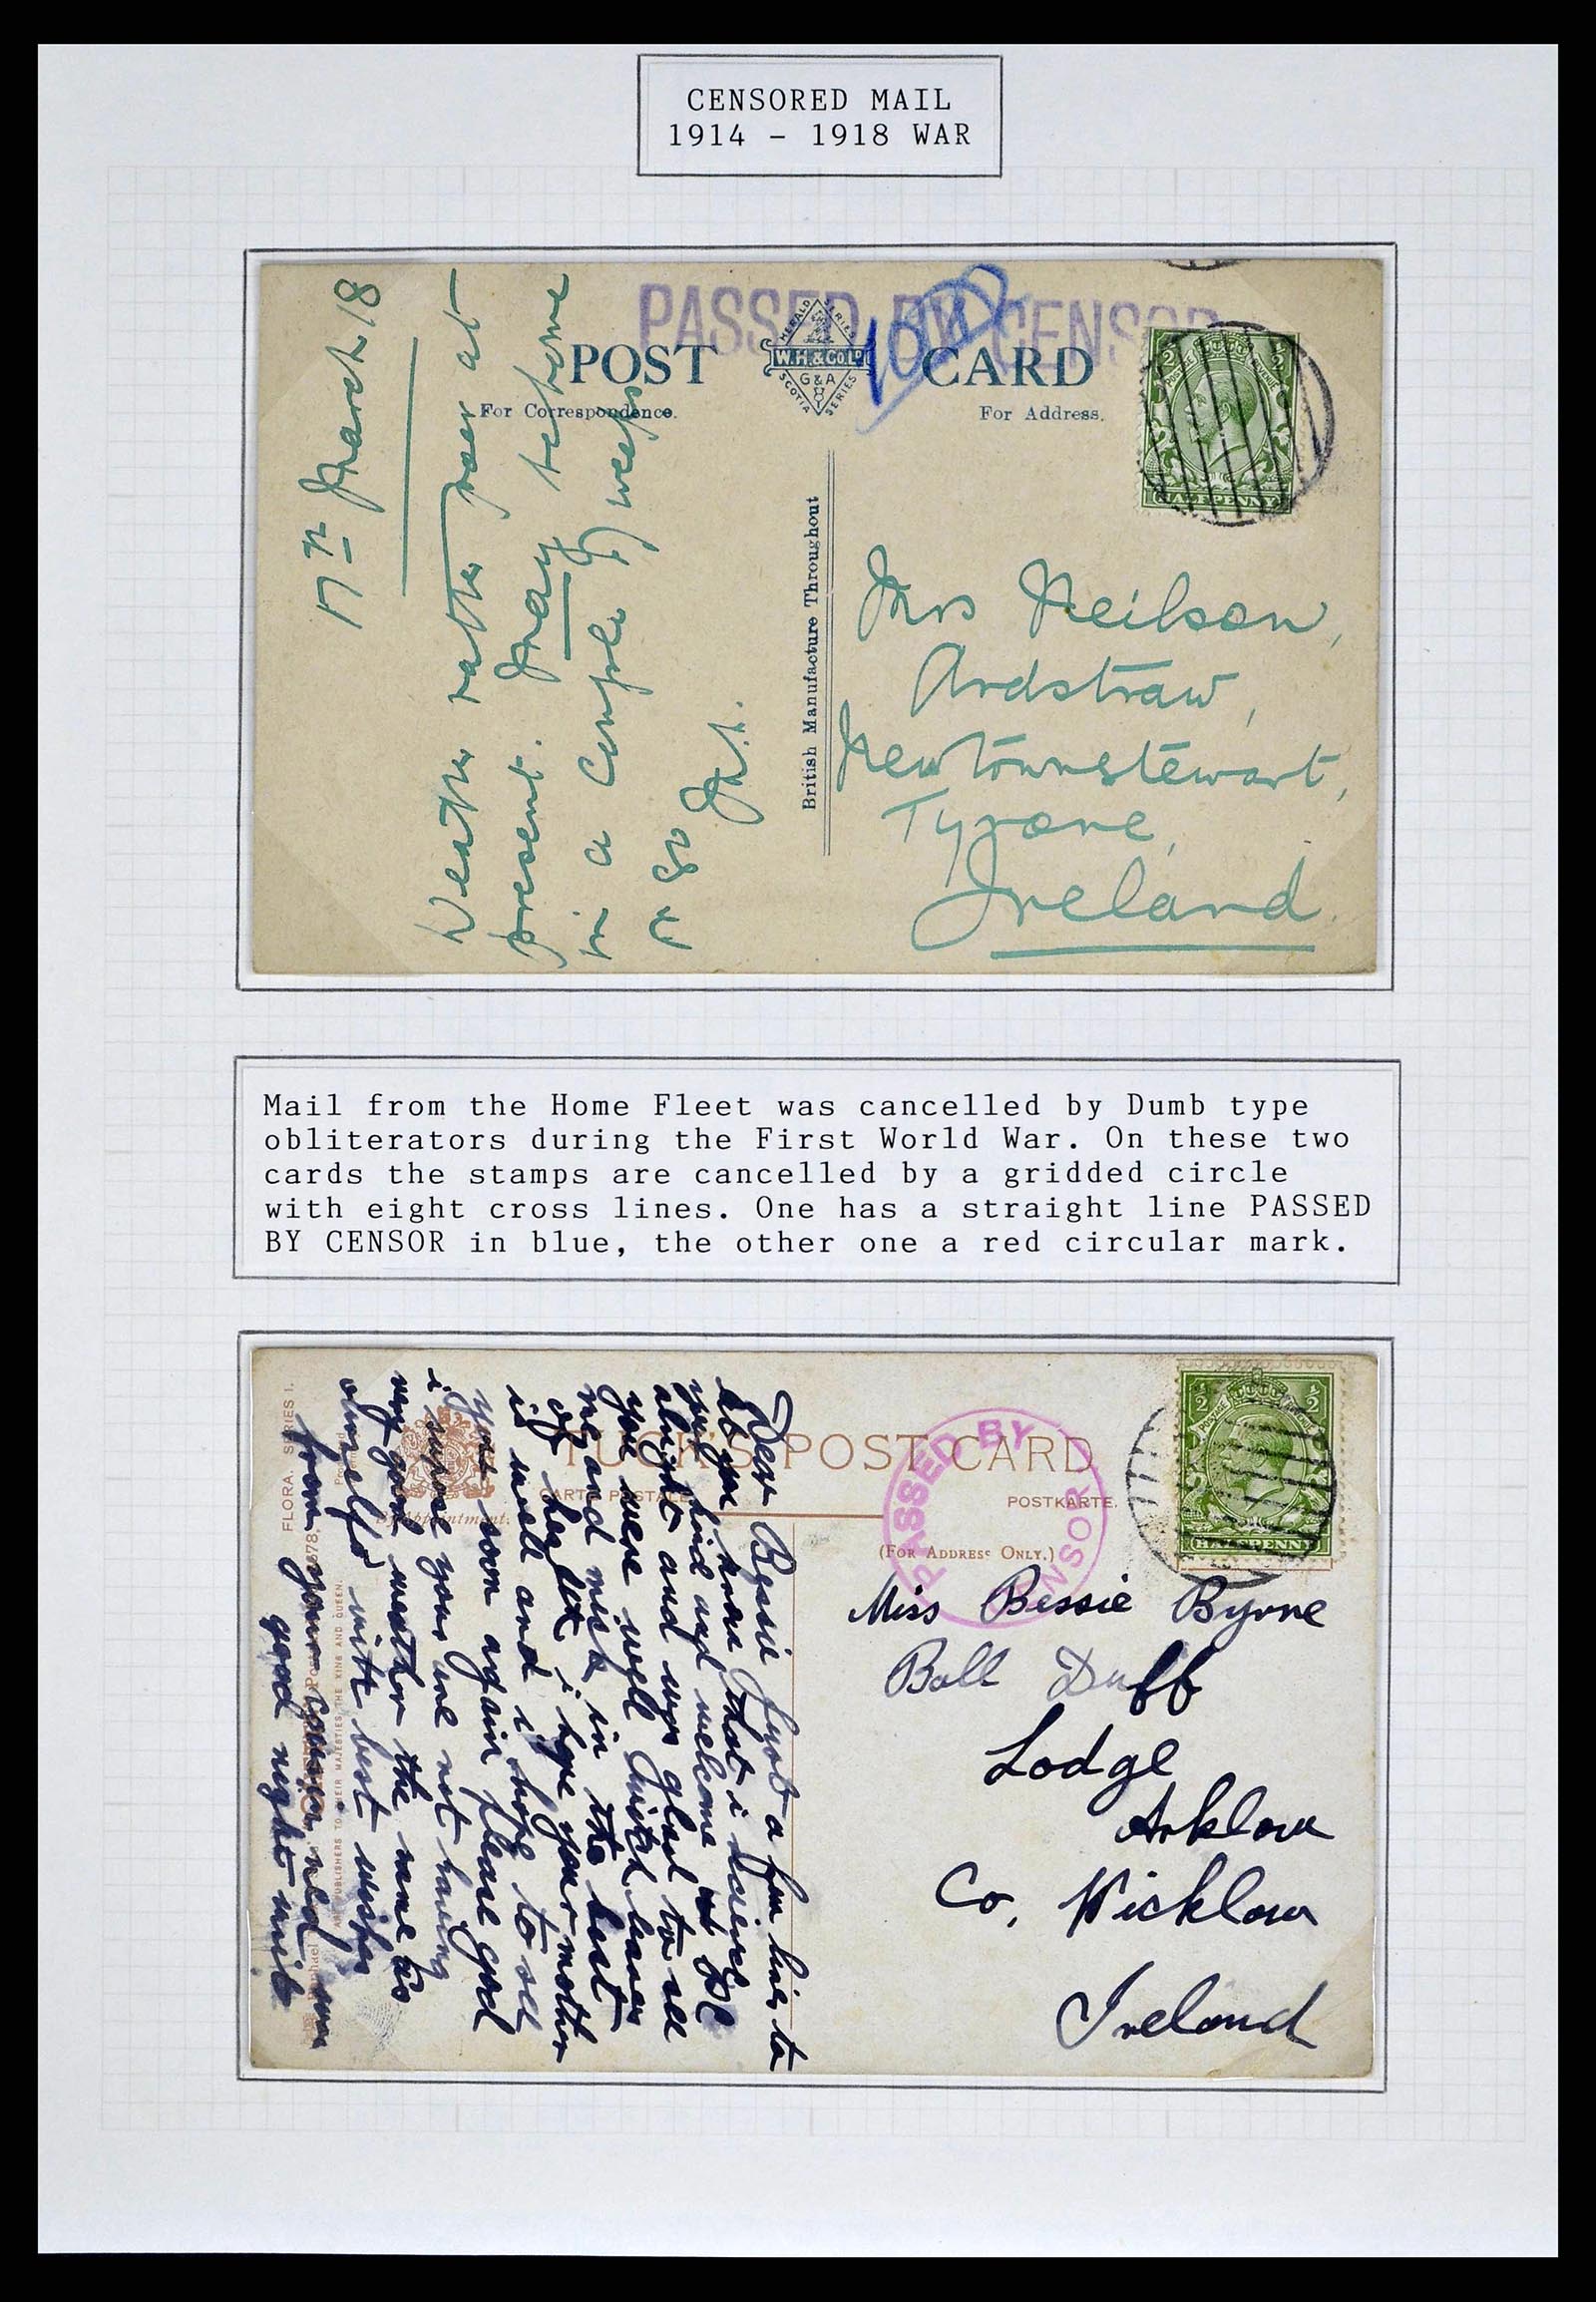 CENSORED MAIL
1914 - 1918 WAR
PASSED BY CENSOR
HERALD SERIES
W.H.&CO.LD
G&A
SCOTIA SERIES
POST CARD
For Correspondence.
For Address.
HALFPENNY
British Manufacture Throughout
17th March 18
Weather rather raw at
present. May be home
in a couple of weeks
or so
Mrs Neilson,
Ardstraw,
Newtownstewart,
Tyrone,
Ireland.
Mail from the Home Fleet was cancelled by Dumb type
obliterators during the First World War. On these two
cards the stamps are cancelled by a gridded circle
with eight cross lines. One has a straight line PASSED
BY CENSOR in blue, the other one a red circular mark.
TUCK'S POST CARD
CARTE POSTALE
POSTKARTE.
By Appointment.
(FOR ADDRESS ONLY.)
PASSED BY CENSOR
POSTAGE REVENUE
HALFPENNY
FLORA. SERIES I.
Dear Bessie Just a few lines to
let you know that i received
your kind and welcome
alright and was glad to see
you were well
me and mick in the best
of health i hope your mother
is well and i hope to see
you soon again please god
i supose your are not having
very good weather the same as
ourselfs with best wishes
from your
good night
Miss Bessie Byrne
Ball Duff
Lodge
Arklow
Co. Wicklow
Ireland